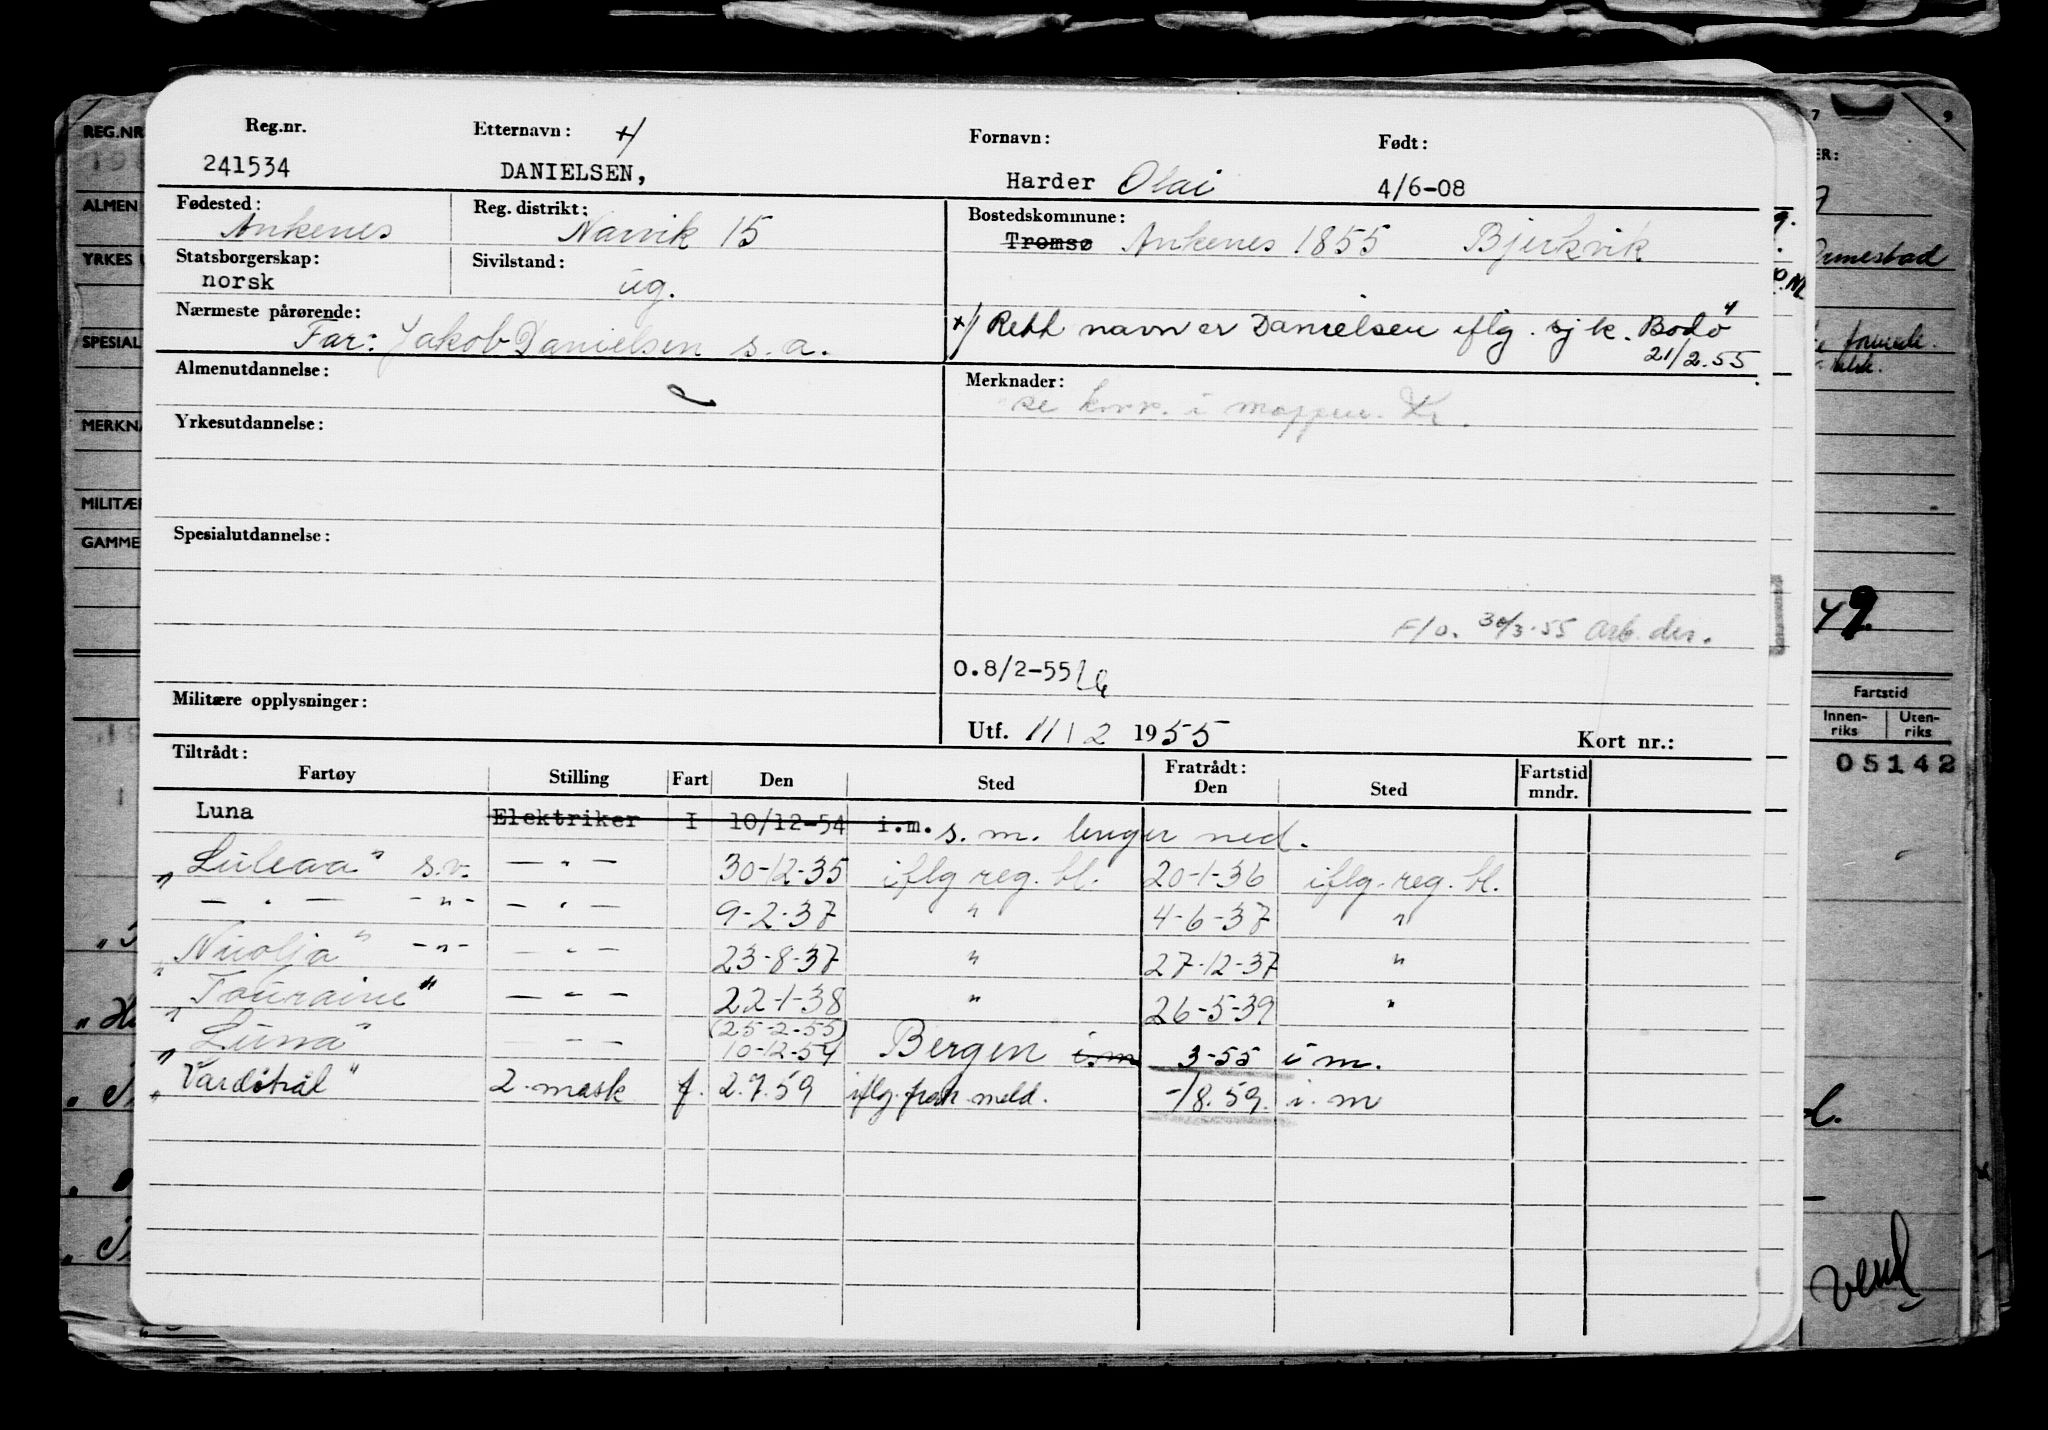 Reg.nr. Etternavn: +/ Fornavn: Født:
241534 DANIELSEN, Harder Olai 4/6-08
Fødested: Reg. distrikt: Bostedskommune:
Ankenes Narvik 15 Tromsø Ankenes 1855 Bjerkvik
Statsborgerskap: Sivilstand:
norsk ug.
Nærmeste pårørende: +/ Rett navn er Danielsen iflg. sjk. Bodø"
Far: Jakob Danielsen s.a. 21/2.55
Almenutdannelse: Merknader:
se korr. i mappen.
Yrkesutdannelse:
Spesialutdannelse:
F/o. 30/3-55 Arb. dir.
O.8/2-55
Militære opplysninger: Utf. 11/2 1955 Kort nr.:
Tiltrådt: Fratrådt: Fartstid
Fartøy Stilling Fart Den Sted Den Sted mndr.
Luna Elektriker I 10/12-54 i.m. s. m. lenger ned.
"Luleaa" s.v. — " — 30-12-35 iflg reg. bl. 20-1-36 iflg. reg. bl.
— " — -"- — " — 9-2-37 " 4-6-37 "
"Nuolja" -"- — " — 23-8-37 " 27-12-37 "
"Touraine" — " — 22-1-38 " 26-5-39 "
(25-2-55)
"Luna" — — 10-12-54 Bergen i.m 3-55 i m.
"Vardstrål" 2. mask f. 2.7.59 iflg. frakt. meld. -/8.59. i. m
REG.NR
ALMEN
YRKES
SPESIAL
MERKN
MILITÆR
GAMME
49.
Fartstid
Innen-riks Uten-riks
05142
vend